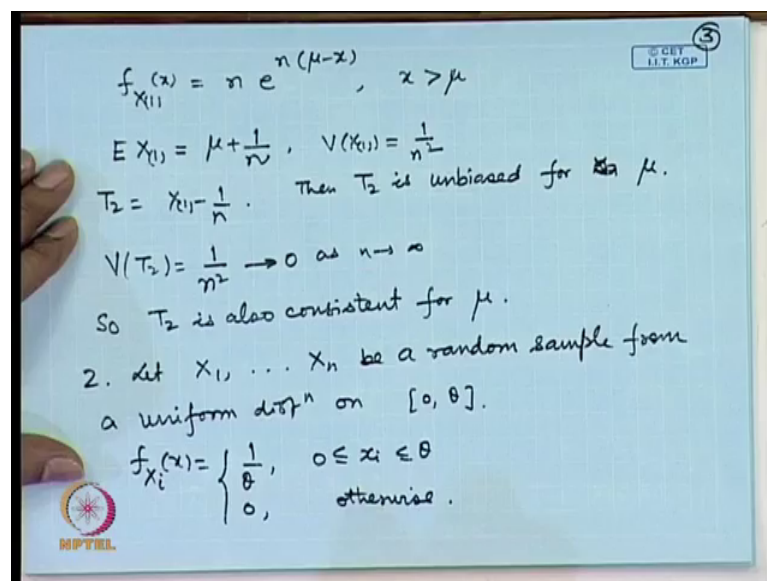 3
© CET
I.I.T. KGP
f_{X_{(1)}}(x) = n e^{n(μ-x)}, x > μ
E X_{(1)} = μ + 1/n, V(X_{(1)}) = 1/n²
T₂ = X_{(1)} - 1/n. Then T₂ is unbiased for μ.
V(T₂) = 1/n² → 0 as n → ∞
So T₂ is also consistent for μ.
2. Let X₁, ... Xₙ be a random sample from
a uniform distⁿ on [0, θ].
f_{X_i}(x) = { 1/θ, 0 ≤ x_i ≤ θ
0, otherwise.
NPTEL